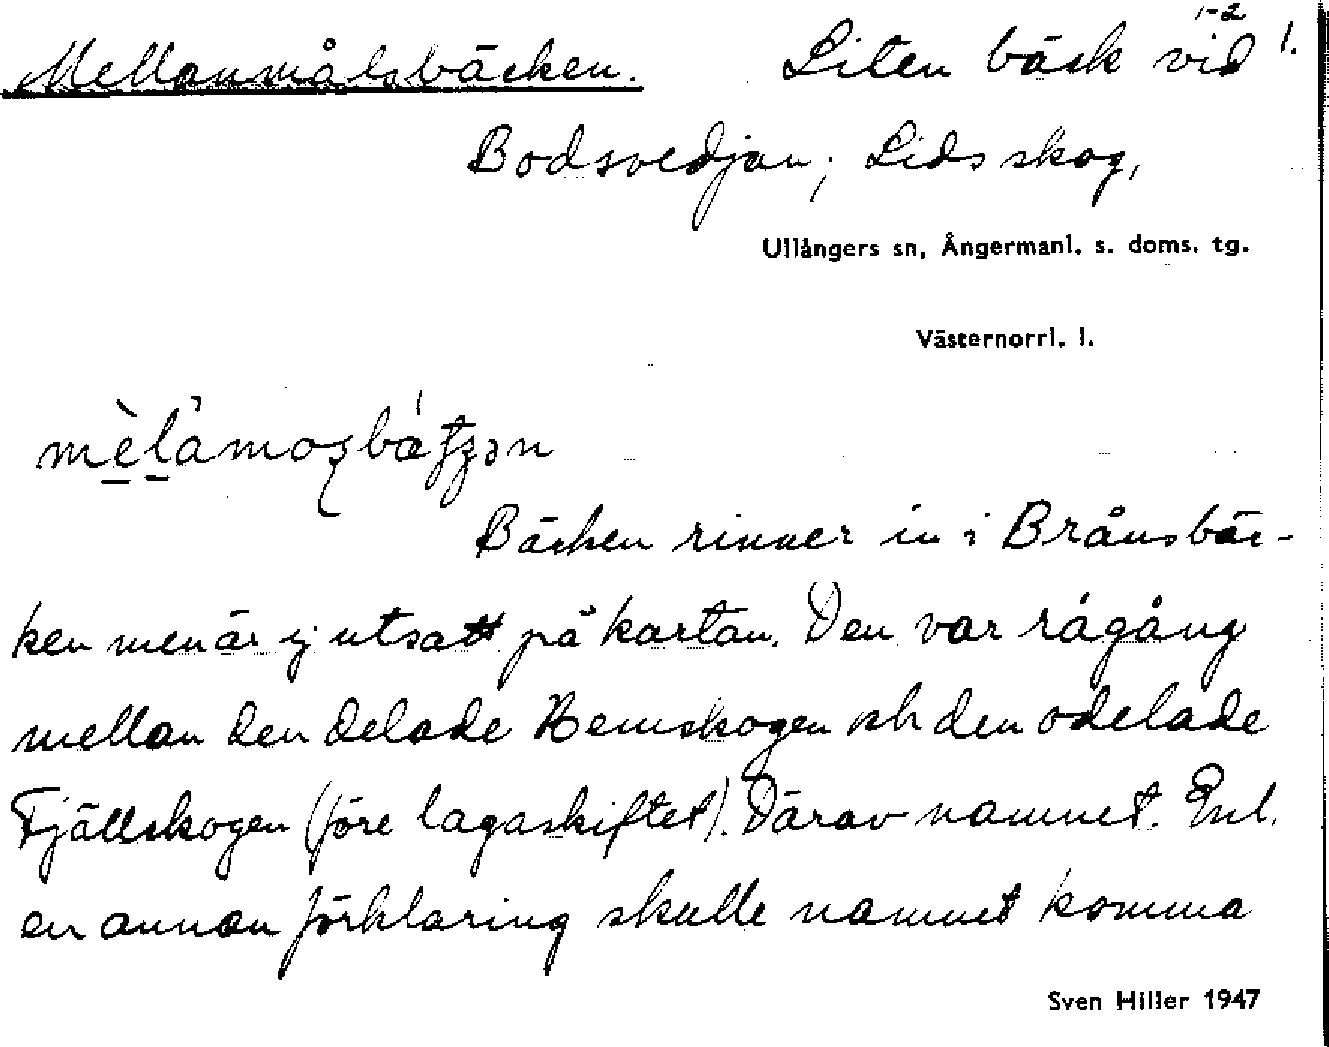 Mellanmålsbäcken. Liten bäck vid 1-2 1.
Bodsvedjan, Lids skog,
Ullångers sn, Ångermanl. s. doms. tg.
Västernorrl. l.
Bäcken rinner in i Brånsbäc-
ken men är ej utsatt på kartan. Den var rågång
mellan den delade Hemskogen och den odelade
Fjällskogen (före lagaskiftet). Därav namnet. Enl.
en annan förklaring skulle namnet komma
Sven Hiller 1947